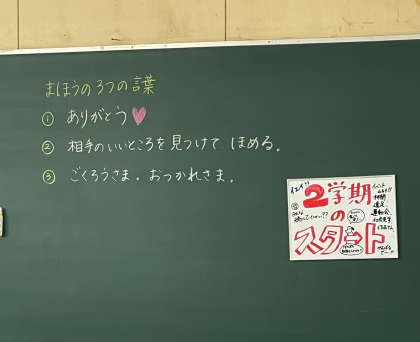 まほうの3つの言葉
① ありがとう♡
② 相手のいいところを見つけて ほめる。
③ ごくろうさま。おつかれさま。
2学期
の
スタート